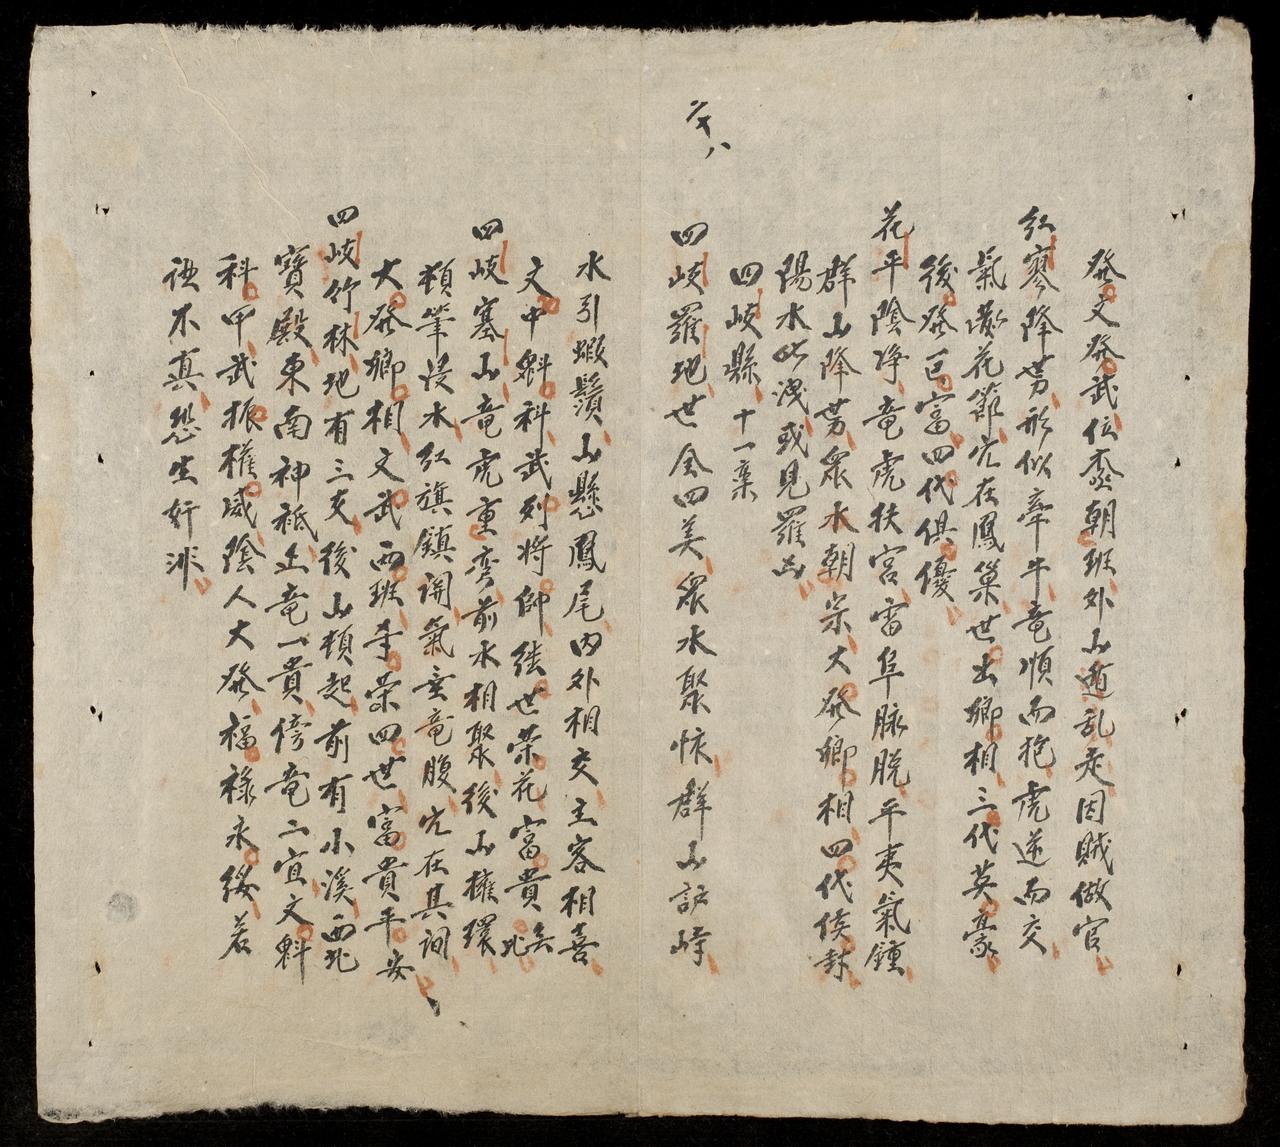 二十八
發文發武位參朝班外山遁乱走因賊做官
紅寥降势形似牽牛竜順而抱虎逆而交
氣散花節穴在鳳巢世出鄉相三代英豪
後發巨富四代俱優
花平陰净竜虎扶宫雷阜脉脱平夷氣鍾
群山降势眾水朝宗大發鄉相四代侯封
陽水此洩或見羅凶
四岐縣十一稾
四岐羅地世全四美眾水聚懷群山訴峙
水引蝦鬚山懸鳳尾内外相交主客相喜
文中魁科武列將帥継世荣花富貴無比
四岐塞山竜虎重弯前水相聚後山擁環
頳筆浸水紅旗鎮関氣Ⅱ竜腹穴在其間
大發鄉相文武两班Ⅱ荣四世富貴平安
四岐竹林地有三支後山頳起前有小溪西北
寶殿東南神祗正竜一貴傍竜二宜文魁
科甲武振權威陰人大發福祿永綏若
Ⅱ不真恐生奸非